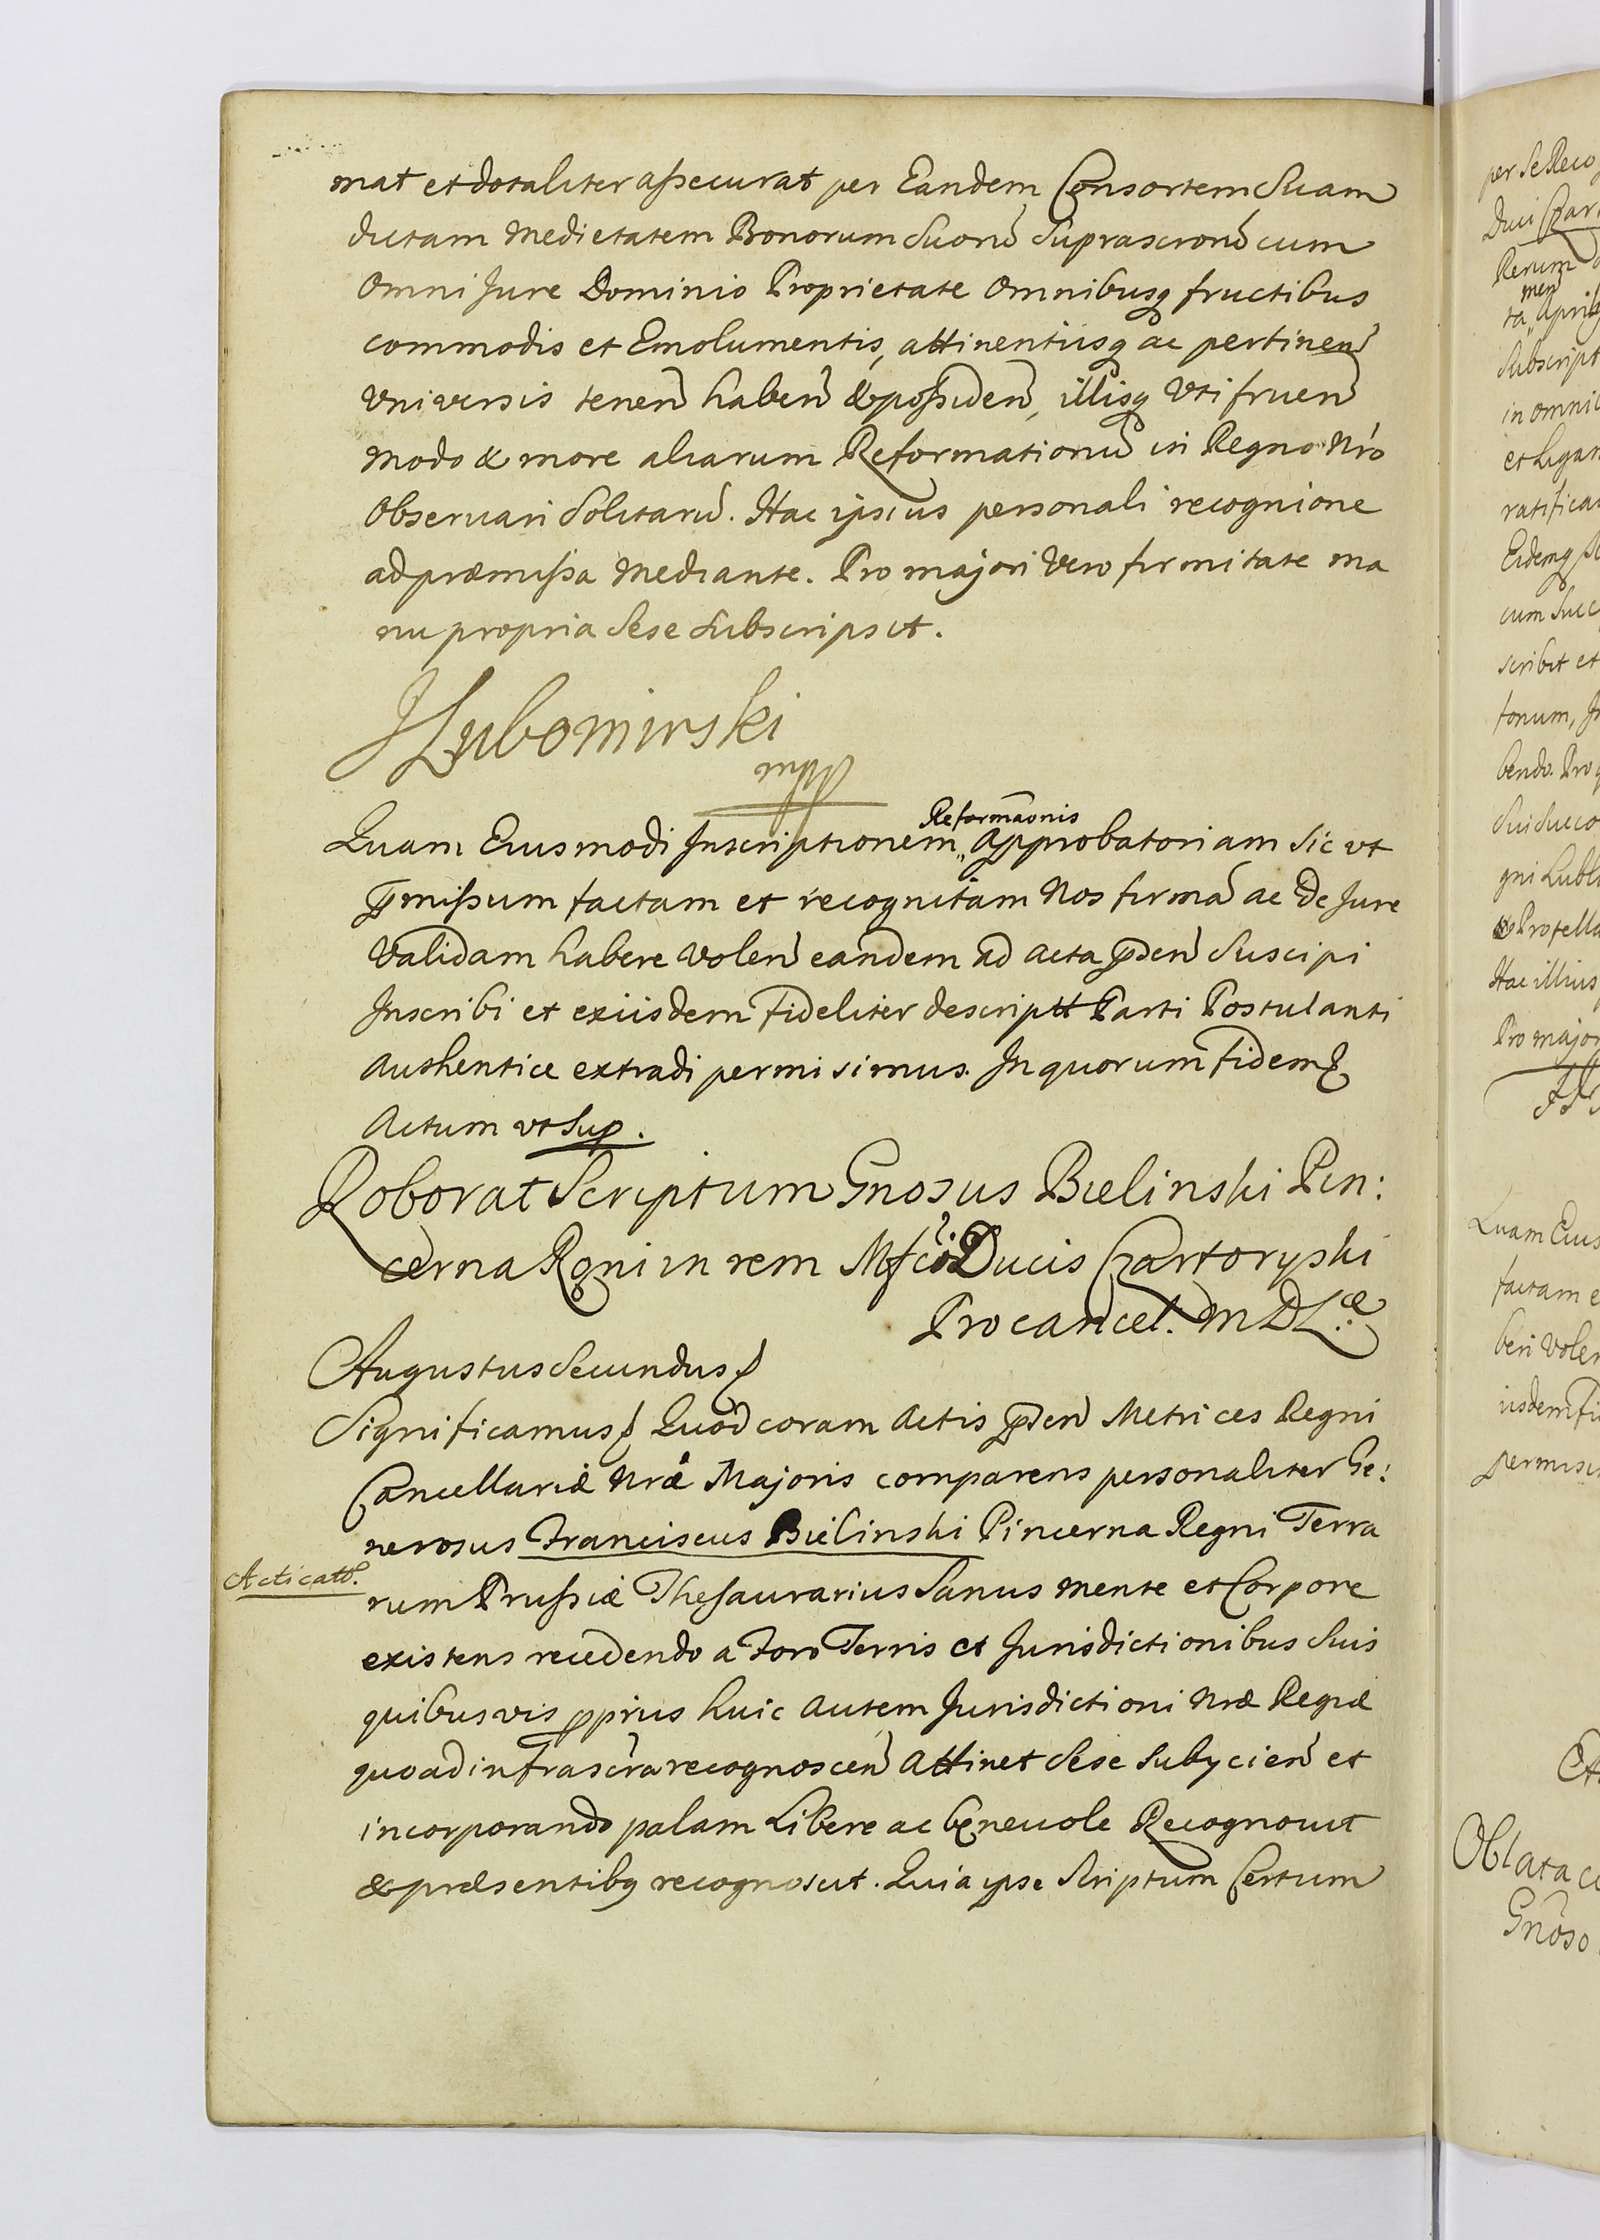 mat et dotaliter assecurat per Eandem Consortem Suam
dictam Medietatem Bonorum Suorū Suprascronū cum
Omni Jure Dominio Proprietate Omnibusq fructibus
commodis et Emolumentis, attinentiisq ac pertinen̄
Universis tenen̄ haben̄ & possiden̄, illisq Uti fruen̄
Modo & more aliarum Reformationū in Regno Nr̄o
Observari Solitarū. Hac ipsius personali recognione
ad præmissa Mediante. Pro majori Vero firmitate ma
nu propria Sese Subscripsit.
JLubomirski
mpp
Reformāonis
Quam Eiusmodi Inscriptionem „ Approbatoriam Sic ut
p̄missum factam et recognitam Nos firmā ac De Jure
Validam habere Volen̄ eandem ad Acta p̄sen̄ Suscipi
Inscribi et exiisdem Fideliter descriptt Parti Postulanti
Authentice extradi permisimus. In quorum Fidem
Actum ut Sup.
Roborat Scriptum Gnosus Bielinski Pin:
cerna Rgni in rem Mfci Ducis Czartoryski
Procancel. M D L.æ
Augustus Secundus
Significamus Quod coram Actis p̄sen̄ Metrices Regni
Cancellariæ Nræ Majoris comparens personaliter Ge:
nerosus Franciscus Bielinski Pincerna Regni Terra
Acticatt.
rum Prussiæ Thesaurarius Sanus mente et Corpore
existens recedendo a Foro Terris et Jurisdictionibus Suis
quibusvis pprius huic Autem Jurisdictioni Nræ Regiæ
quoad infrascr̄a recognoscen̄ Attinet Sese Subycien̄ et
incorporando palam Libere ac benevole Recognovit
& præsentibq recognoscit. Quia ipse Scriptum Certum
per Se Reco
Duci Czar
Rerum
men
ta „ April
Subscript
in omni
et Ligan
ratifica
Eidemq
cum Succ
scribit et
tonum, In
bendo. Pro q
Sui Succo
gni Lubl
Hac illius
Pro major
Quam Eius
factam e
beri Volen
iisdem Fi
permisi
Oblata
Gnōso